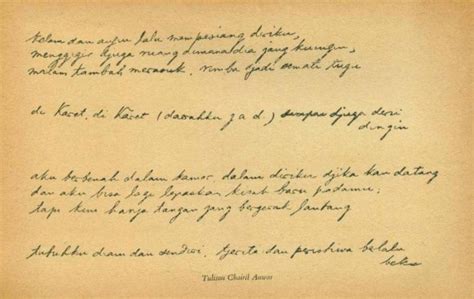 kelam dan angin lalu mempesiang diriku,
menggigir djuga ruang dimana dia jang kuingin,
malam tambah merasuk, rimba djadi semati tugu
di Karet, di Karet (daerahku y.a.d.) sampai djuga deru
dingin
aku berbenah dalam kamar, dalam diriku djika kau datang
dan aku bisa lagi lepaskan kisah baru padamu;
tapi kini hanja tangan jang bergerak lantang
tubuhku diam dan sendiri, tjerita dan peristiwa berlalu
beku
Tulisan Chairil Anwar